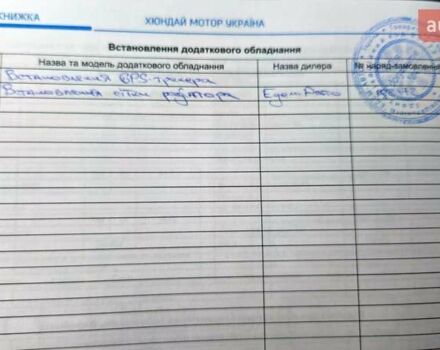 КНИЖКА
ХЮНДАЙ МОТОР УКРАЇНА
au
Встановлення додаткового обладнання
Назва та модель додаткового обладнання Назва дилера № наряд-замовлення
Встановлення GPS-трекера
Встановлення сітки радіатора